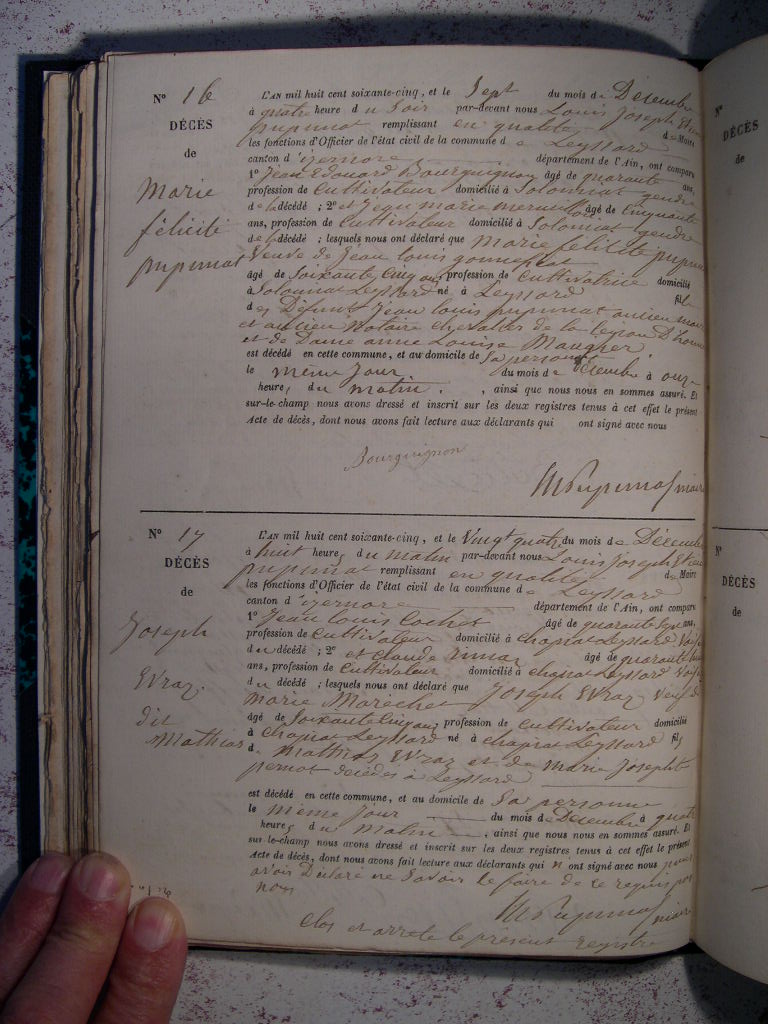 N° 16
DÉCÈS
de
Marie
félicité
pupunat
L'AN mil huit cent soixante-cinq, et le Sept du mois de Décembre
à quatre heure du Soir par-devant nous Louis Joseph Etien
pupunat remplissant en qualité de Maire
les fonctions d'Officier de l'état civil de la commune de Leyssard
canton d'izernore département de l'Ain, ont comparu
1° Jean Edouard Bourguignon âgé de quarante ans,
profession de Cultivateur domicilié à Solomiat gendre
de la décédé ; 2° et Jean marie âgé de Cinquante
ans, profession de Cultivateur domicilié à Solomiat gendre
de la décédé ; lesquels nous ont déclaré que Marie félicité pupunat
Veuve de Jean Louis
âgé de Soixante Cinq ans profession de Cultivatrice domicilié
à Solomiat Leyssard né à Leyssard fille
des Défunts Jean Louis pupunat ancien maire
et ancien Notaire chevalier de la Légion D'honn
et de Dame anne Louise
est décédé en cette commune, et au domicile de Sa personne
le même Jour du mois de Décembre à onze
heures du matin. , ainsi que nous nous en sommes assuré. Et
sur-le-champ nous avons dressé et inscrit sur les deux registres tenus à cet effet le présent
Acte de décès, dont nous avons fait lecture aux déclarants qui ont signé avec nous
Bourguignon
Pupunat maire
N° 17
DÉCÈS
de
Joseph
Evraz
dit
Mathias
L'AN mil huit cent soixante-cinq, et le Vingt quatre du mois de Décembre
à huit heures du matin par-devant nous Louis Joseph Etien
pupunat remplissant en qualité de Maire
les fonctions d'Officier de l'état civil de la commune de Leyssard
canton d'izernore département de l'Ain, ont comparu
1° Jean Louis Cochet âgé de quarante Sept ans,
profession de Cultivateur domicilié à chapiat Leyssard Voisin
du décédé ; 2° et claude âgé de quarante
ans, profession de Cultivateur domicilié à chapiat Leyssard Voisin
du décédé ; lesquels nous ont déclaré que Joseph Evraz Veuf de
Marie Maréchet
âgé de Soixante Cinq ans profession de Cultivateur domicilié
à chapiat Leyssard né à chapiat Leyssard fils
de Mathias Evraz et de Marie Josephte
pernot décédés à Leyssard
est décédé en cette commune, et au domicile de Sa personne
le même Jour du mois de Décembre à quatre
heures du matin , ainsi que nous nous en sommes assuré. Et
sur-le-champ nous avons dressé et inscrit sur les deux registres tenus à cet effet le présent
Acte de décès, dont nous avons fait lecture aux déclarants qui n'ont signé avec nous pour
avoir Déclaré ne Savoir le faire de ce requis par
nous
Pupunat maire
Clos et arrêté le présent registre
N°
DÉCÈS
de
N°
DÉCÈS
de